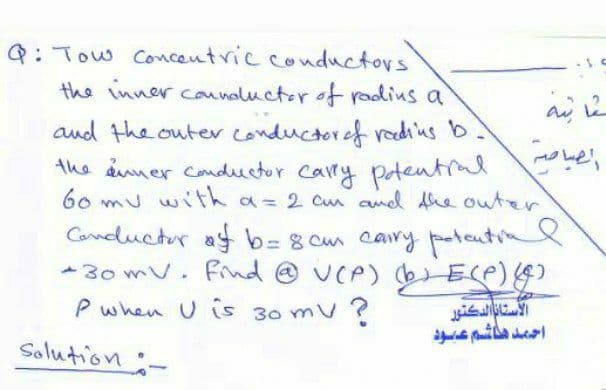 Q: Tow concentric conductors
the inner counoluctor of radius a
and the outer conductor of radius b.
the inner conductor carry potential
60 mv with a = 2 cm and the outer
Conductor of b = 8 cm carry potential
-30 mV. Find @ V(P) (b) E(P) (c)
P when V is 30 mV ?
الأستاذ الدكتور
احمد هاشم عبود
Solution :-